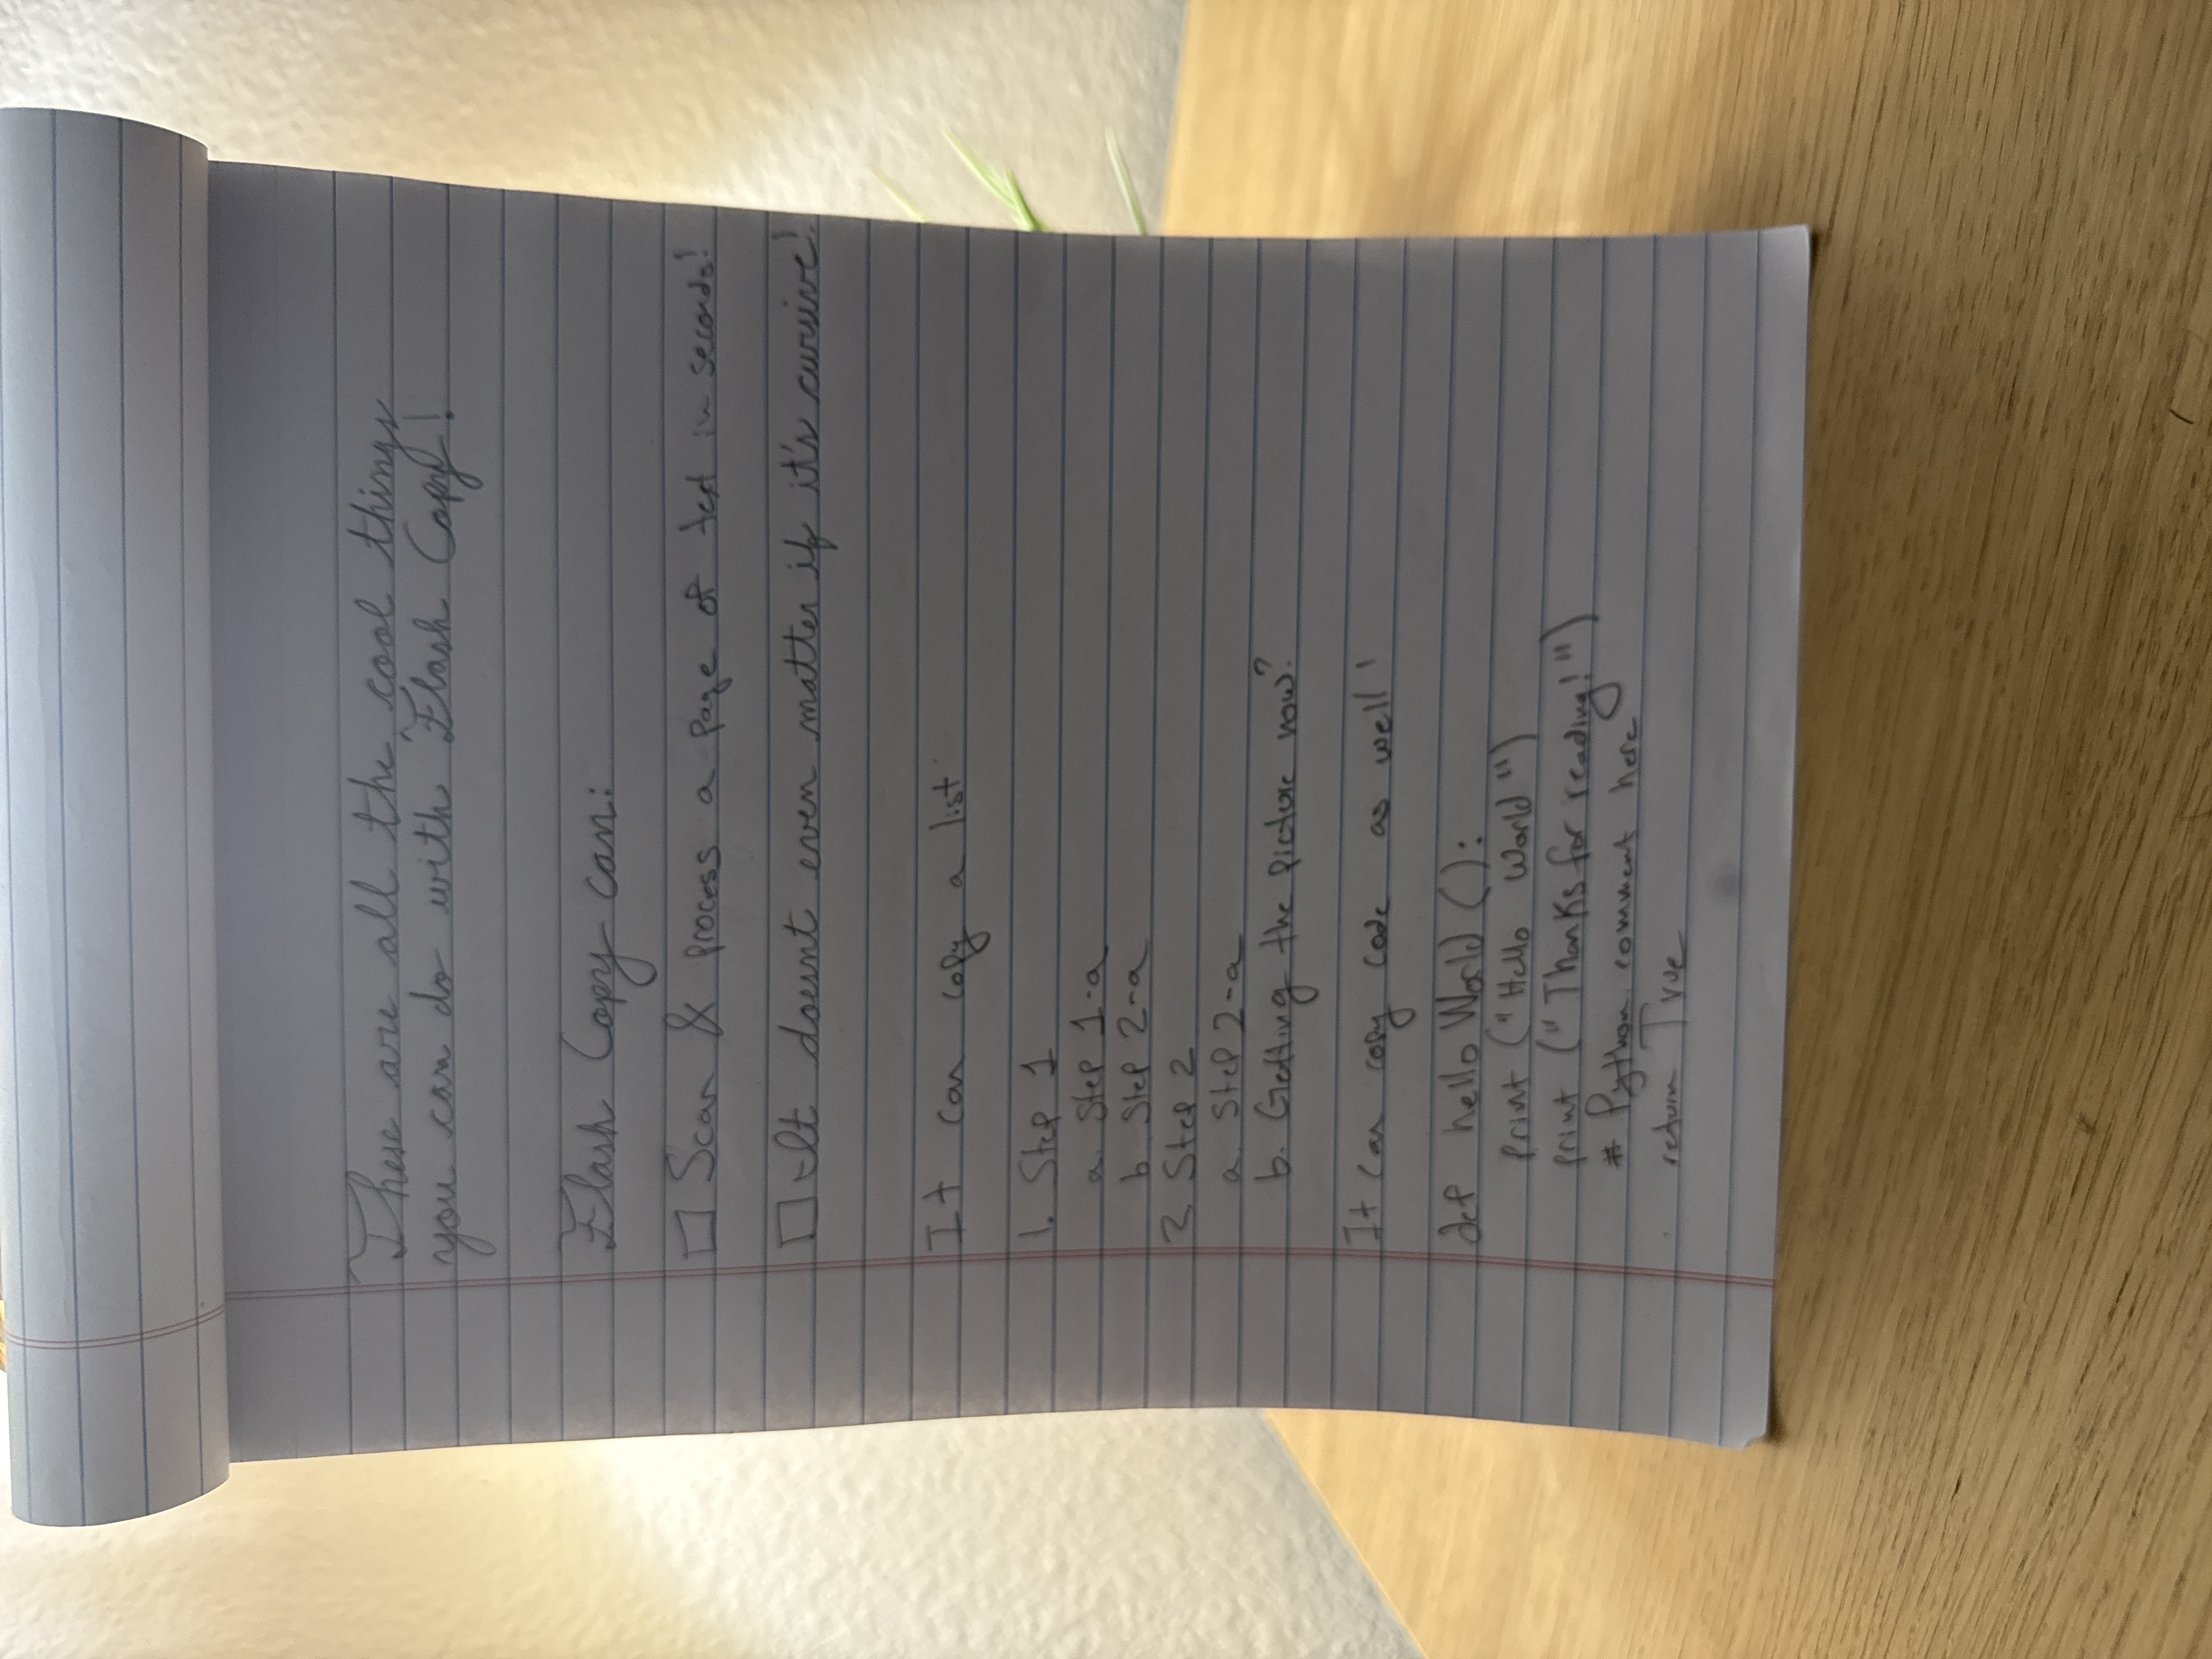 These are all the cool things
you can do with Flash Copy!
Flash Copy can:
☐ Scan & process a page of text in seconds!
☐ It doesnt even matter if it's cursive!
It can copy a list
1. Step 1
a. Step 1-a
b. Step 2-a
2. Step 2
a. Step 2-a
b. Getting the picture now?
It can copy code as well!
def hello World ():
print ("Hello World")
print ("Thanks for reading!")
# Python comment here
return True